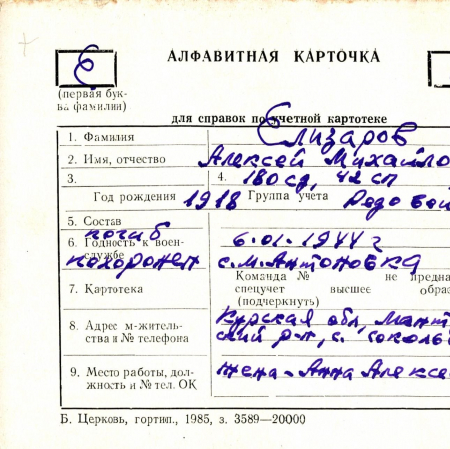 Е
АЛФАВИТНАЯ КАРТОЧКА
(первая бук-
ва фамилии)
для справок по учетной картотеке
1. Фамилия Елизаров
2. Имя, отчество Алексей Михайло
3. 4. 180 сд, 42 сп
Год рождения 1918 Группа учета Рядовой
5. Состав
погиб
6. Годность к воен- 6.01.1944 г
службе
похоронен с. М. Антоновка
Команда № не предна
7. Картотека спецучет высшее образ
(подчеркнуть)
8. Адрес м-житель- Курская обл, Мант
ства и № телефона ский р-н, с.
9. Место работы, дол- жена - Анна Алексе
жность и № тел. ОК
Б. Церковь, гортип., 1985, з. 3589—20000